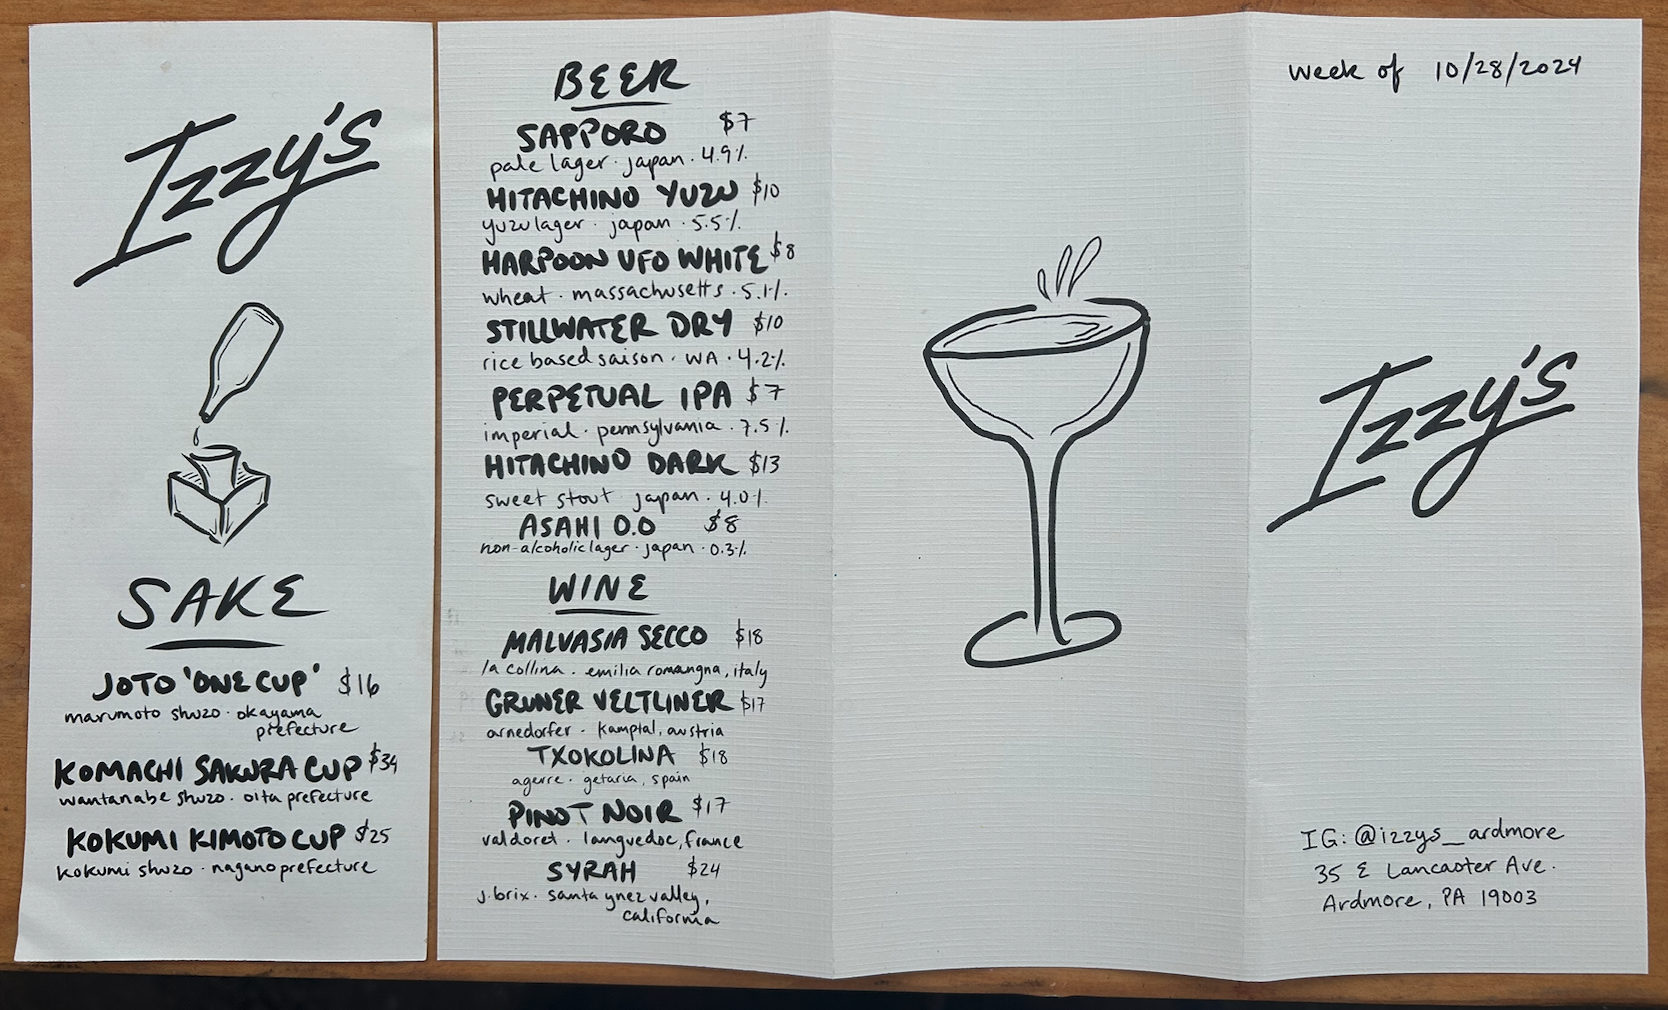 Izzy's
SAKE
JOTO 'ONE CUP' $16
marumoto shuzo · okayama
prefecture
KOMACHI SAKURA CUP $34
wantanabe shuzo · oita prefecture
KOKUMI KIMOTO CUP $25
kokumi shuzo · nagano prefecture
BEER
SAPPORO $7
pale lager · japan · 4.9%
HITACHINO YUZU $10
yuzu lager · japan · 5.5%
HARPOON UFO WHITE $8
wheat · massachusetts · 5.1%
STILLWATER DRY $10
rice based saison · WA · 4.2%
PERPETUAL IPA $7
imperial · pennsylvania · 7.5%
HITACHINO DARK $13
sweet stout · japan · 4.0%
ASAHI 0.0 $8
non-alcoholic lager · japan · 0.3%
WINE
MALVASIA SECCO $18
la collina · emilia romangna, italy
GRUNER VELTLINER $17
arnedorfer · kamptal, austria
TXOKOLINA $18
agerre · getaria, spain
PINOT NOIR $17
valdoret · languedoc, france
SYRAH $24
j. brix · santa ynez valley,
california
week of 10/28/2024
Izzy's
IG: @izzys_ardmore
35 E Lancaster Ave.
Ardmore, PA 19003